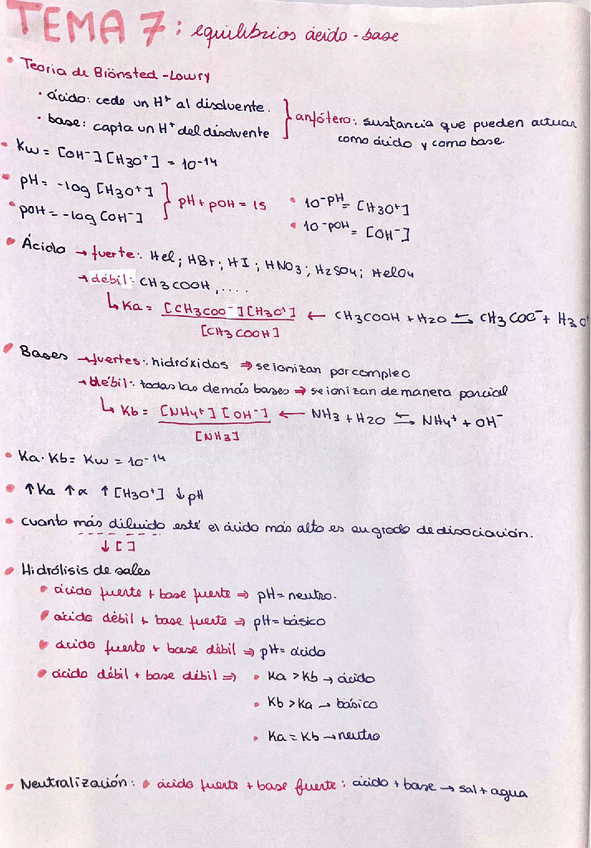 TEMA 7: equilibrios ácido-base
• Teoría de Brönsted-Lowry
• ácido: cede un H⁺ al disolvente.
• base: capta un H⁺ del disolvente
} anfótero: sustancia que pueden actuar
como ácido y como base.
• Kw = [OH⁻][H3O⁺] = 10⁻¹⁴
• pH = -log [H3O⁺]
• pOH = -log [OH⁻]
} pH + pOH = 15
• 10⁻ᵖᴴ = [H3O⁺]
• 10⁻ᵖᴼᴴ = [OH⁻]
• Ácido → fuerte: Hcl; HBr; HI; HNO3; H2SO4; HclO4
→ débil: CH3COOH, ....
↳ Ka = [CH3COO⁻][H3O⁺] / [CH3COOH] ← CH3COOH + H2O ⇆ CH3COO⁻ + H3O⁺
• Bases → fuertes: hidróxidos ⇒ se ionizan por compleo
→ débil: todas las demás bases ⇒ se ionizan de manera parcial
↳ Kb = [NH4⁺][OH⁻] / [NH3] ← NH3 + H2O ⇆ NH4⁺ + OH⁻
• Ka · Kb = Kw = 10⁻¹⁴
• ↑Ka ↑α ↑[H3O⁺] ↓pH
• cuanto más diluido esté el ácido más alto es su grado de disociación.
↓[ ]
• Hidrólisis de sales
• ácido fuerte + base fuerte ⇒ pH = neutro.
• ácido débil + base fuerte ⇒ pH = básico
• ácido fuerte + base débil ⇒ pH = ácido
• ácido débil + base débil ⇒ • Ka > Kb → ácido
• Kb > Ka → básico
• Ka = Kb → neutro
• Neutralización: • ácido fuerte + base fuerte: ácido + base → sal + agua